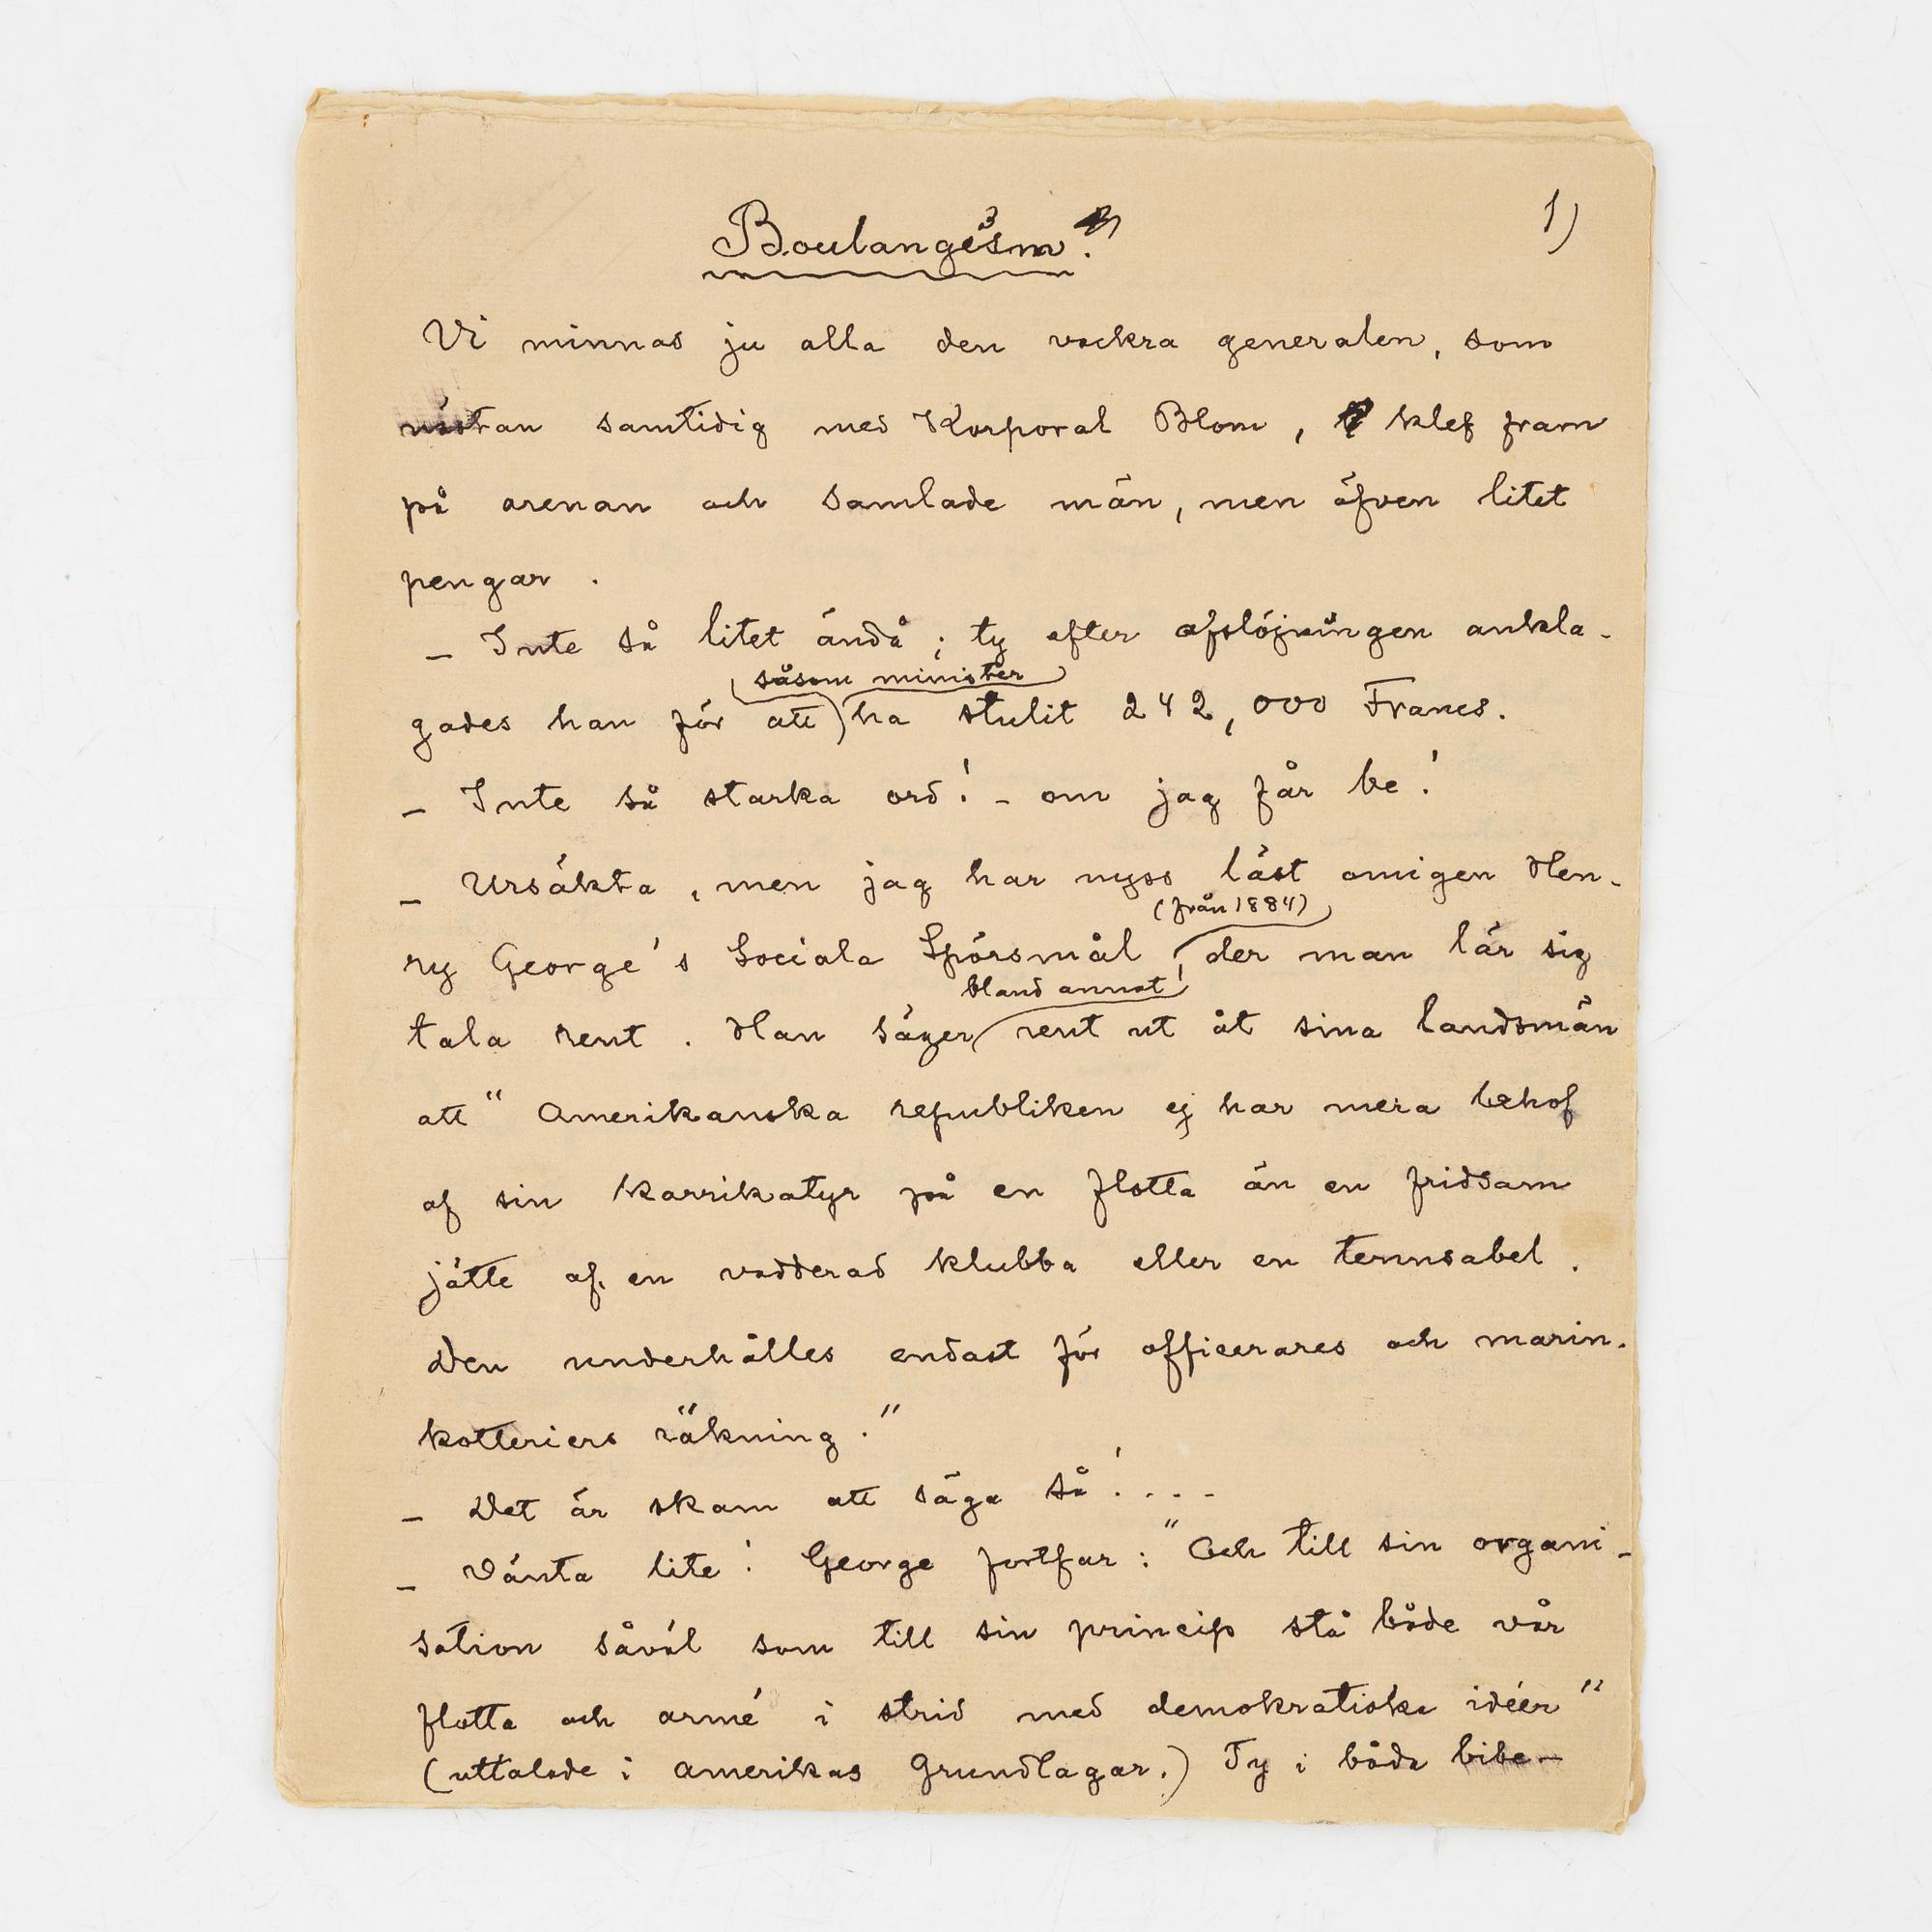 1)
Boulangésm.
Vi minnas ju alla den vackra generalen, som
nästan samtidig med Korporal Blom, klef fram
på arenan och samlade män, men äfven litet
pengar.
– Inte så litet ändå; ty efter afslöjningen ankla-
såsom minister
gades han för att ha stulit 242,000 Francs.
– Inte så starka ord! – om jag får be!
– Ursäkta, men jag har nyss läst omigen Hen-
(från 1884)
ry George's Sociala Spörsmål, der man lär sig
bland annat
tala rent. Han säger rent ut åt sina landsmän
att "Amerikanska republiken ej har mera behof
af sin karrikatyr på en flotta än en fridsam
jätte af en vadderad klubba eller en tennsabel.
Den underhålles endast för officerares och marin-
kotteriers räkning."
– Det är skam att säga så! ...
– Vänta lite! George fortfar: "Och till sin organi-
sation såväl som till sin princip stå både vår
flotta och armé i strid med demokratiska idéer"
(uttalade i Amerikas Grundlagar.) Ty i båda bibe-